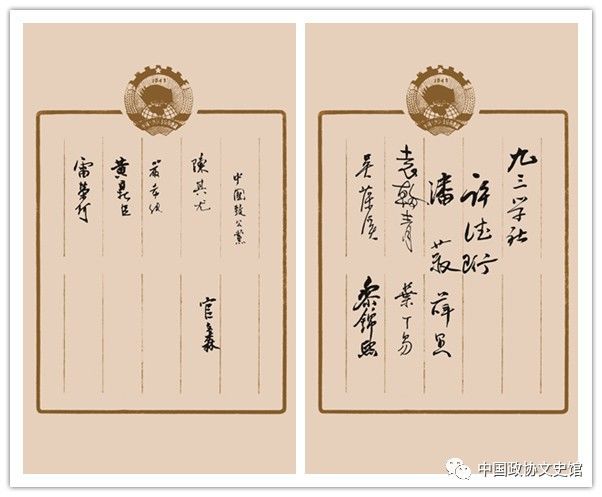 中國致公黨
陳其尤 官文森
嚴希純
黄鼎臣
雷榮珂
1949
九三学社
許德珩
潘菽 薛愚
袁翰青 葉丁易
吴藻溪 黎錦熙
1949
中国政协文史馆